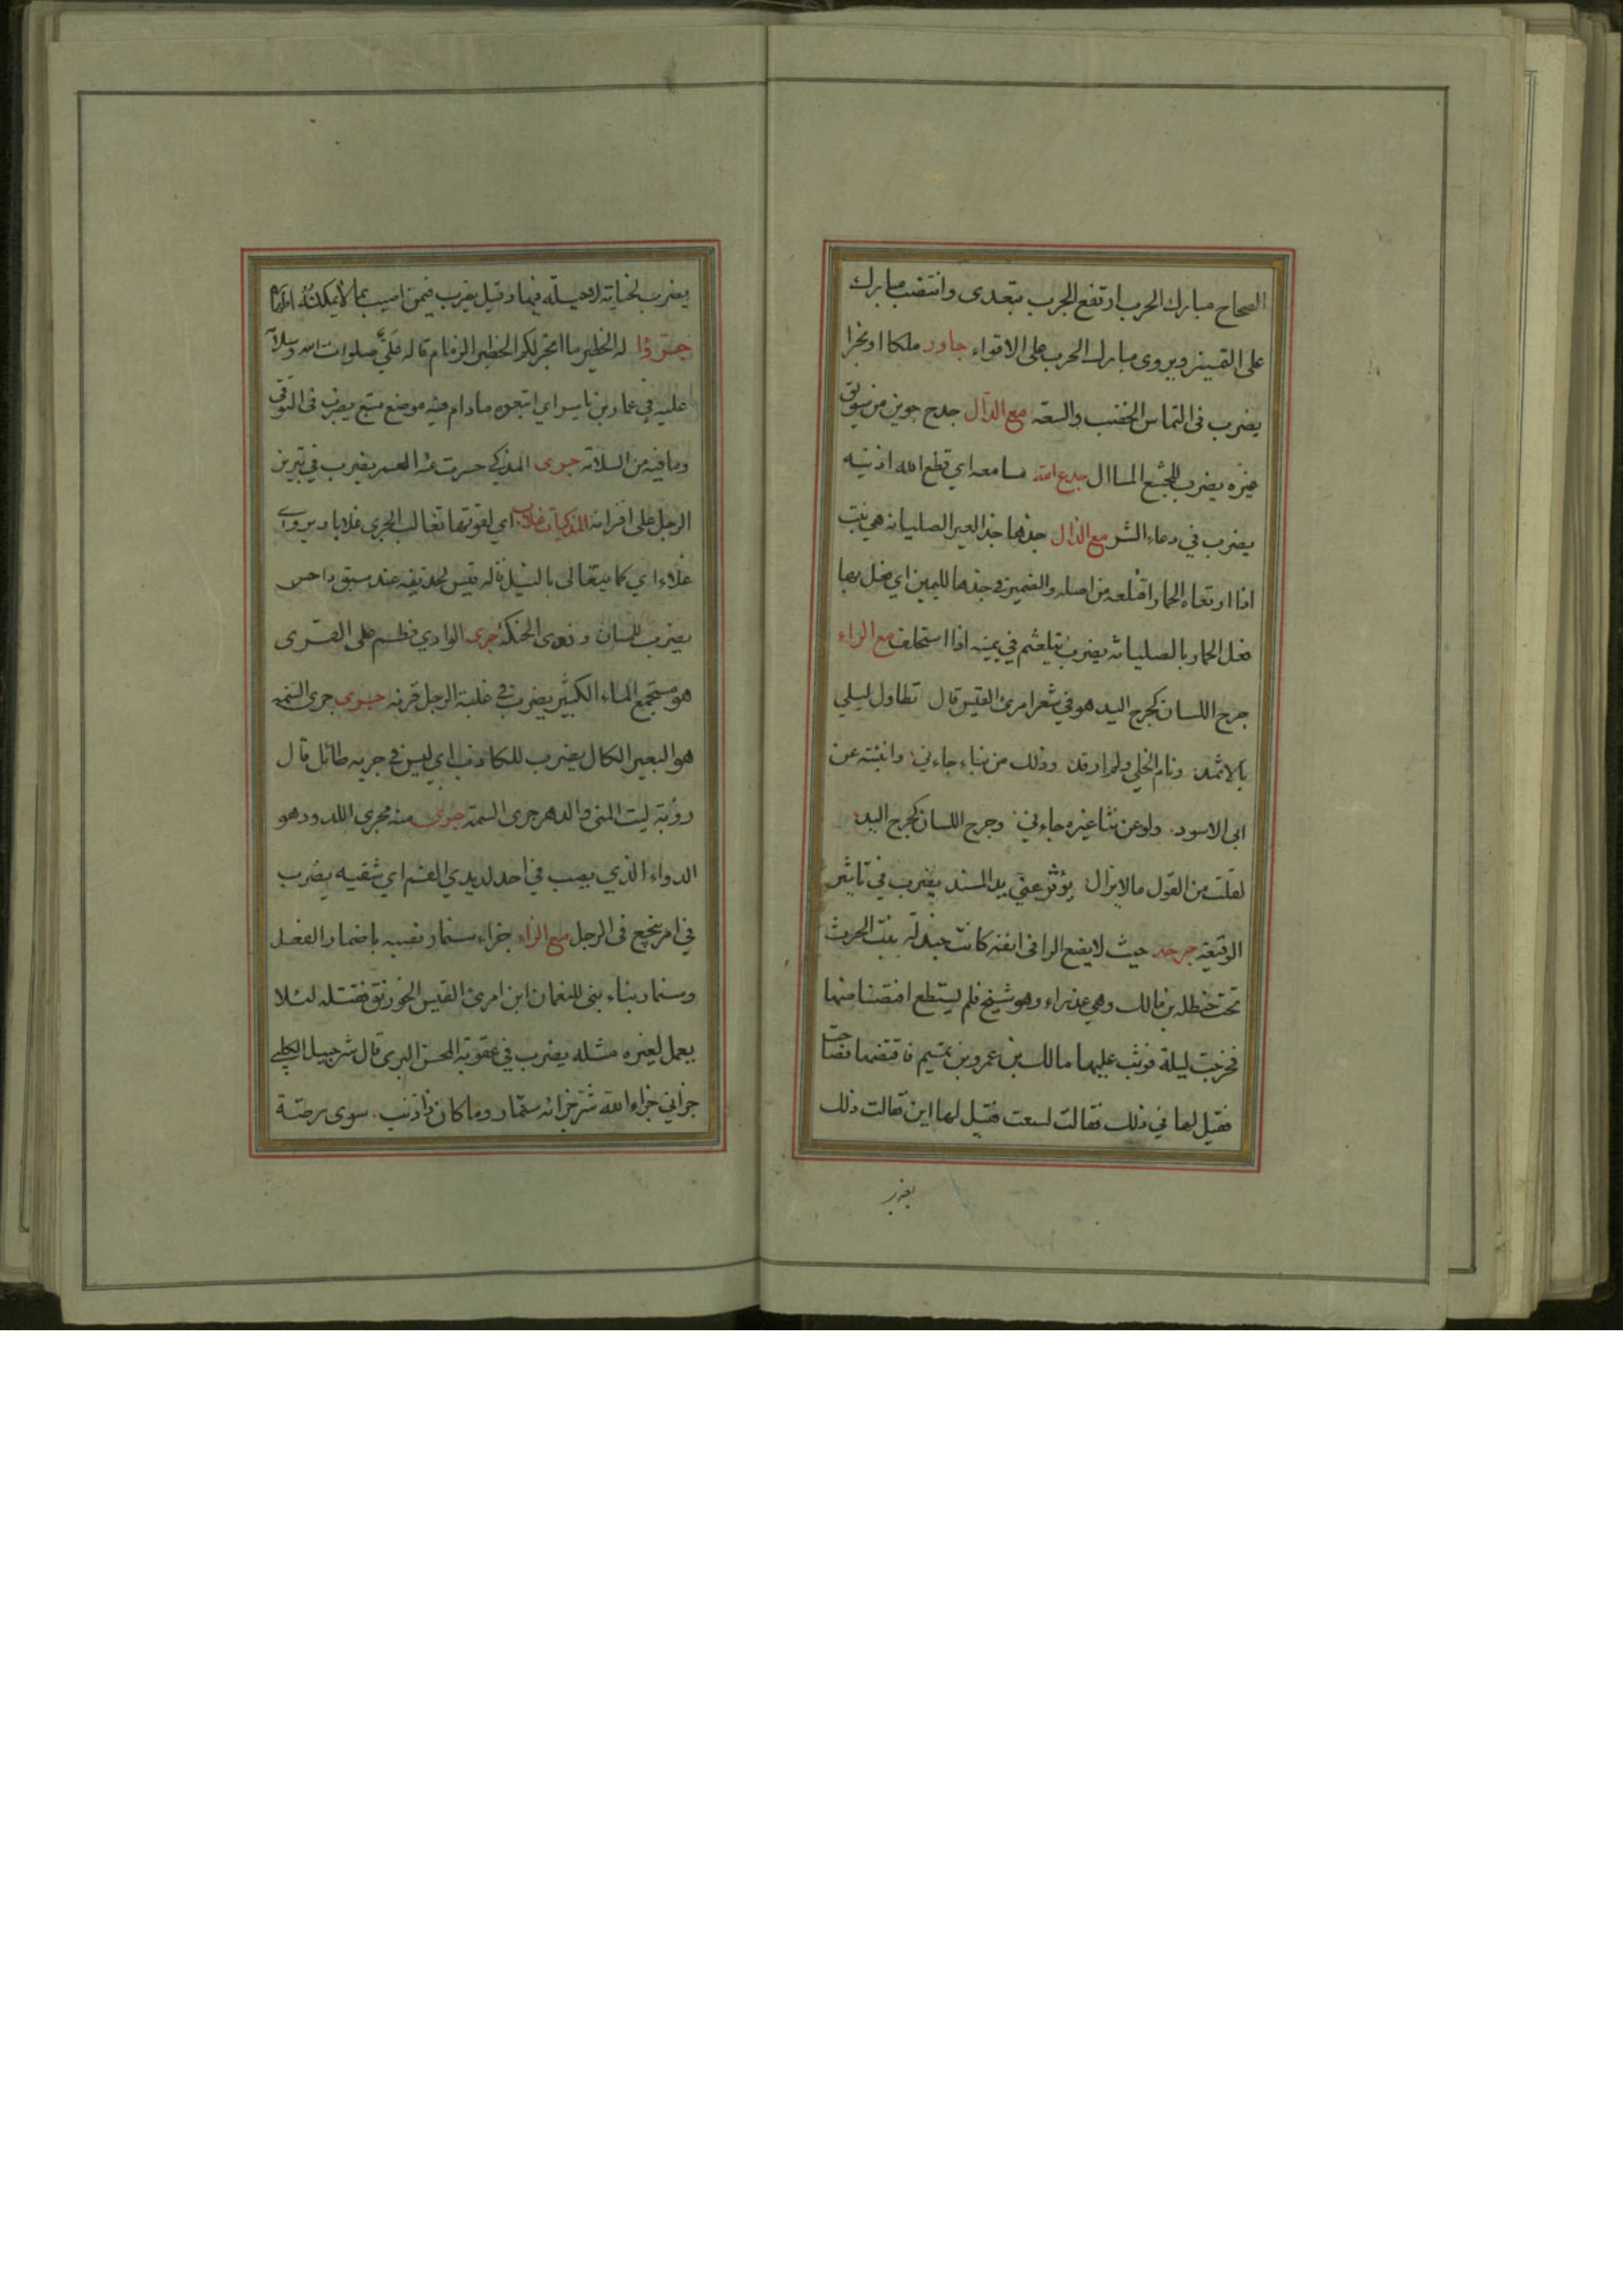 الصحاح مبارك الحرب ارتفع الجرب بتعدى وانتصب مبارك
على التميز ويروى مبارك الحرب على الاقواء جاور ملكا او بحرا
يضرب فى التماس الخصب والسعة مع الدال جدح جوين من سويق
غيره يضرب للجشع المسأل جدع الله مسامعه اي قطع الله اذنيه
يضرب في دعاء الشر مع الذال جذها جذ العير الصليانه هي نبت
اذا ارتعاه الحمار اقتلعه من اصله والضمير في جذها لليمين اي فعل بها
فعل الحمار بالصليانه يضرب يتلعثم في يمينه اذا استحلف مع الراء
جرح اللسان كجرح اليد هو في شعر امرئ القيس قال تطاول ليلي
بالاثمد ونام الخلي ولم ارقد وذلك من نباء جاءني وانبئته عن
ابى الاسود ولو عن نثا غيره جاءني وجرح اللسان كجرح اليد
لقلت من القول مالا يزال يؤثر عني يد المسند يضرب في تاثير
الوقيعة جرحه حيث لا يضع الراقى انفه كانت جندلة بنت الحرث
تحت حنظلة بن مالك وهي عذراء وهو شيخ فلم يستطع افتضاضها
فخرجت ليلة فوثب عليها مالك بن عمرو بن تميم فاقتضها فصاحت
فقيل لها في ذلك فقالت لسعت فقيل لها اين فقالت ذلك
يضرب لجناية لا حيلة فيها وقيل يضرب فيمن اصيب بما لا يمكنه اظهاره
جروا له الخطير ما انجر لكم الخطير الزمام قاله علي صلوات الله وسلامه
عليه في عمار بن ياسر اي اتبعوه ما دام فيه موضع متبع يضرب فى التوقى
وما فيه من السلامه جرى المذكي حسرت عنه الحمر يضرب في تبريز
الرجل على اقرانه المذكيات غلاب اي لقوتها تغالب الجرى غلابا ويروى
غلاء اي كما يتغالى بالنبل قاله قيس لحذيفه عند سبق داحس
يضرب للمسان وذوى الحنكة جرى الوادي فطم على القرى
هو مستجمع الماء الكثير يضرب في غلبة الرجل قرنه جرى جرى السمه
هو البعير الكال يضرب للكاذب اي ليس في جريه طائل قال
روبة ليت المنى والدهر جرى السمة جرى منه مجرى اللدود هو
الدواء الذي يصب في احد لديدي الفم اي شقيه يضرب
في امر ينجع فى الرجل مع الزاء جزاء سنمار نصبه باضمار الفعل
وسنمار بناء بنى للنعمان ابن امرئ القيس الخورنق فقتله لئلا
يعمل لغيره مثله يضرب في عقوبة المحسن البرى قال شرحبيل الكلبي
جزاني جزاه الله شر جزائه سنمار وما كان ذا ذنب سوى رصة